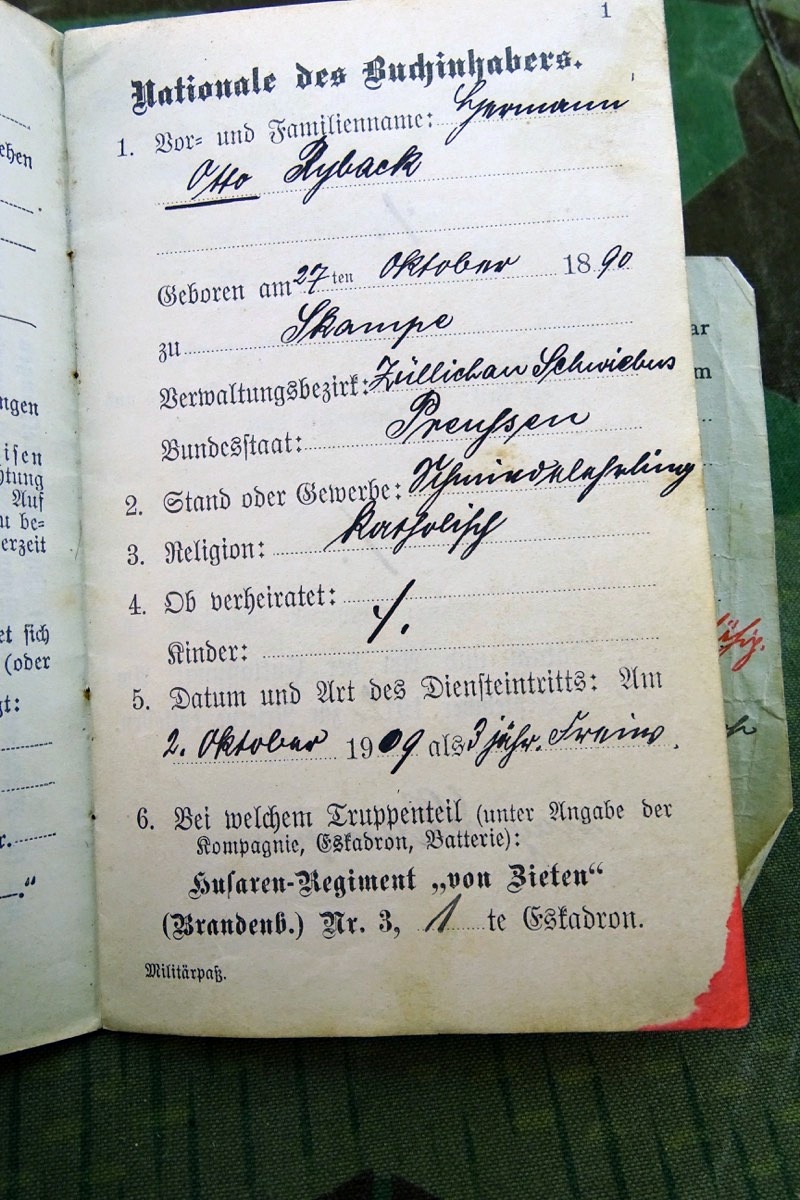 1
Nationale des Buchinhabers.
1. Vor- und Familienname: Hermann
Otto Ryback
Geboren am 27ten Oktober 1890
zu Skampe
Verwaltungsbezirk: Züllichau Schwiebus
Bundesstaat: Preussen
2. Stand oder Gewerbe: Schmiedelehrling
3. Religion: Katholisch
4. Ob verheiratet:
Kinder: ./.
5. Datum und Art des Diensteintritts: Am
2. Oktober 1909 als 3 jähr. Freiw.
6. Bei welchem Truppenteil (unter Angabe der
Kompagnie, Eskadron, Batterie):
Husaren-Regiment „von Zieten“
(Brandenb.) Nr. 3, 1te Eskadron.
Militärpaß.
ehen
ngen
isen
htung
Auf
u be-
erzeit
et sich
(oder
gt:
r.
“
ar
m